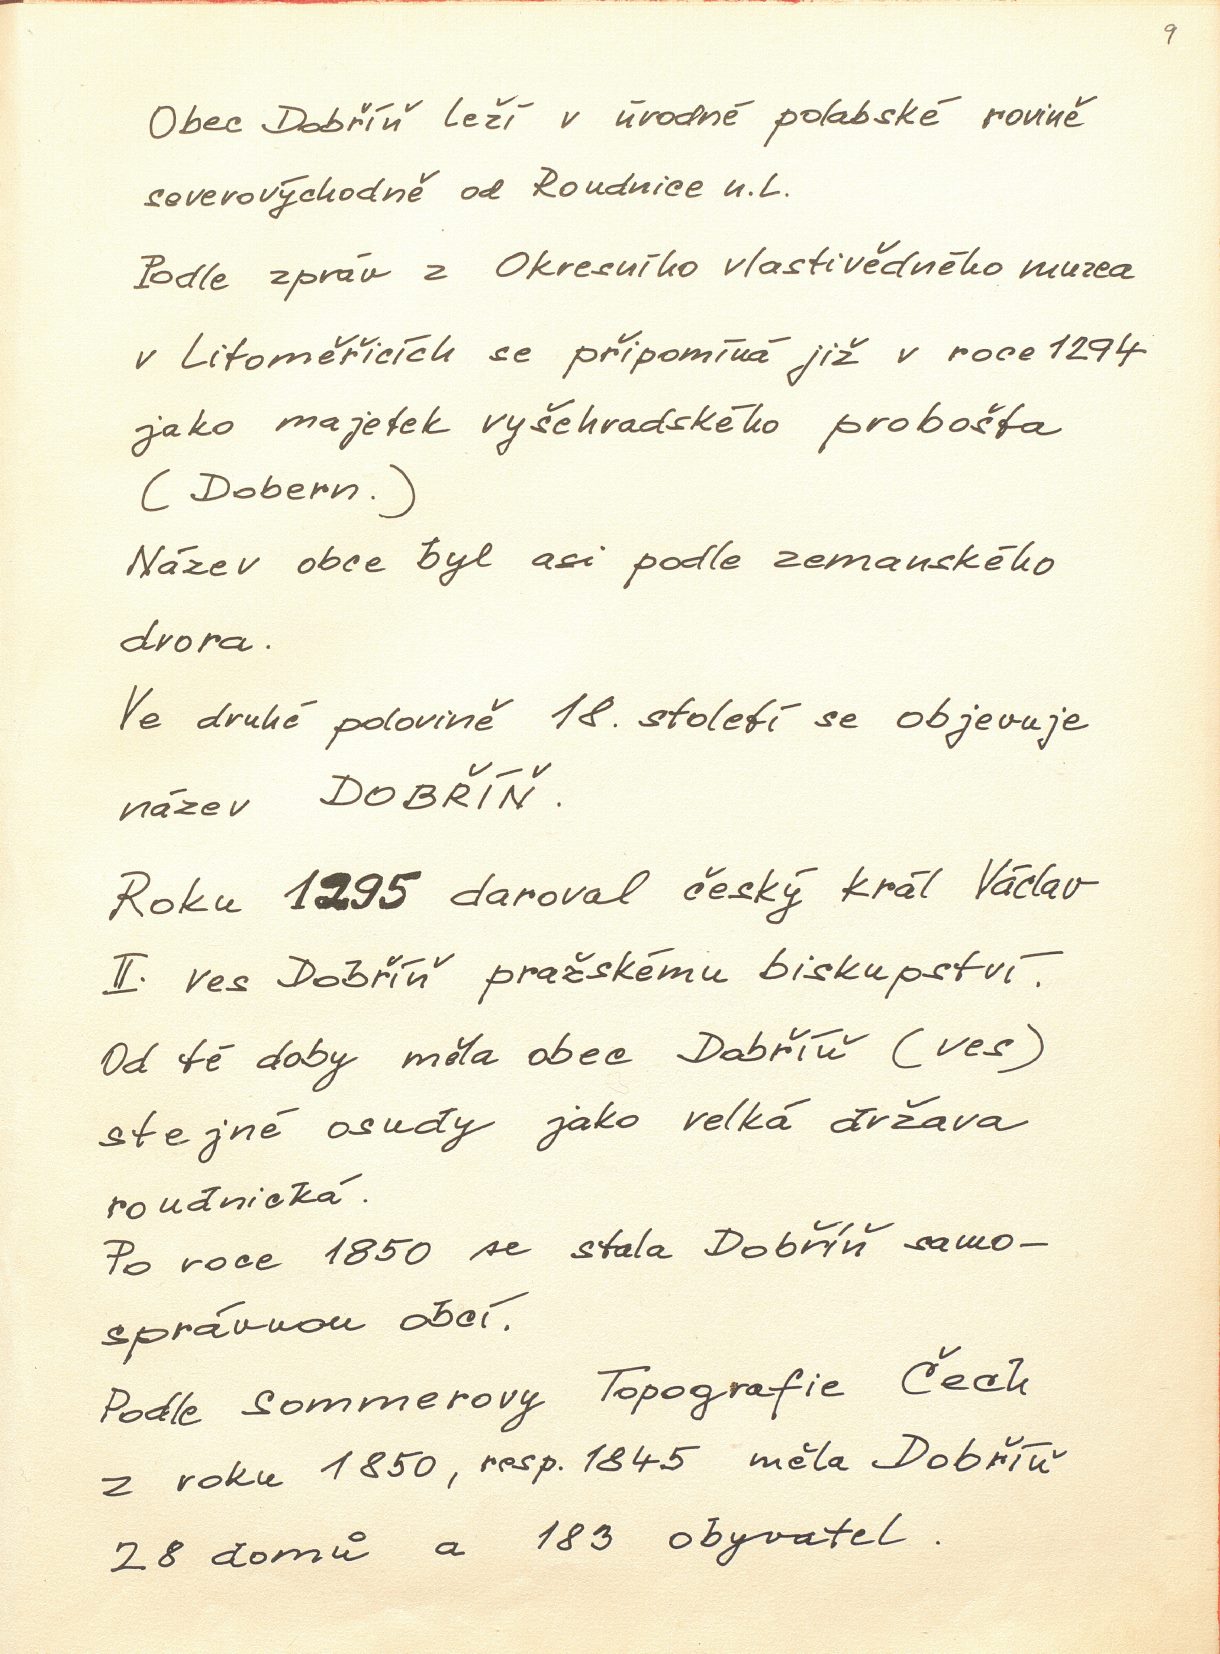 9
Obec Dobříň leží v úrodné polabské rovině
severovýchodně od Roudnice n.L.
Podle zpráv z Okresního vlastivědného muzea
v Litoměřicích se připomíná již v roce 1294
jako majetek vyšehradského probošta
(Dobern.)
Název obce byl asi podle zemanského
dvora.
Ve druhé polovině 18. století se objevuje
název DOBŘÍŇ.
Roku 1295 daroval český král Václav
II. ves Dobříň pražskému biskupství.
Od té doby měla obec Dobříň (ves)
stejné osudy jako velká država
roudnická.
Po roce 1850 se stala Dobříň samo-
správnou obcí.
Podle Sommerovy Topografie Čech
z roku 1850, resp. 1845 měla Dobříň
28 domů a 183 obyvatel.